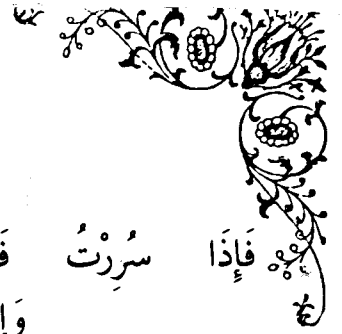 فَإِذَا سُرِرْتُ